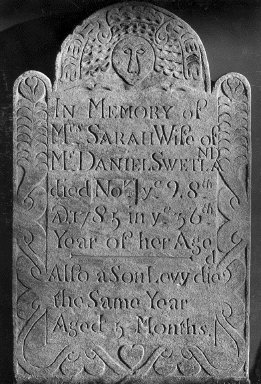 IN MEMORY of
Mrs SARAH Wife of
Mr DANIEL SWETLAND
died Nov ye 9. 8th
AD. 1785 in ye 56th
Year of her Aged
Also a Son Levy died
the Same Year
Aged 5 Months.